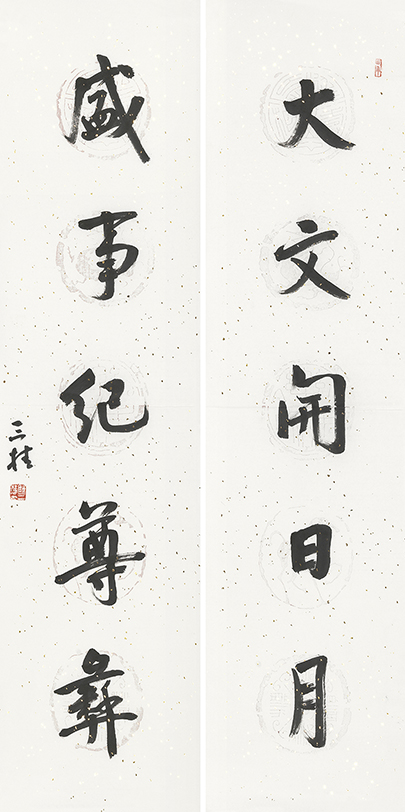 大文開日月
盛事紀尊彝
三桂